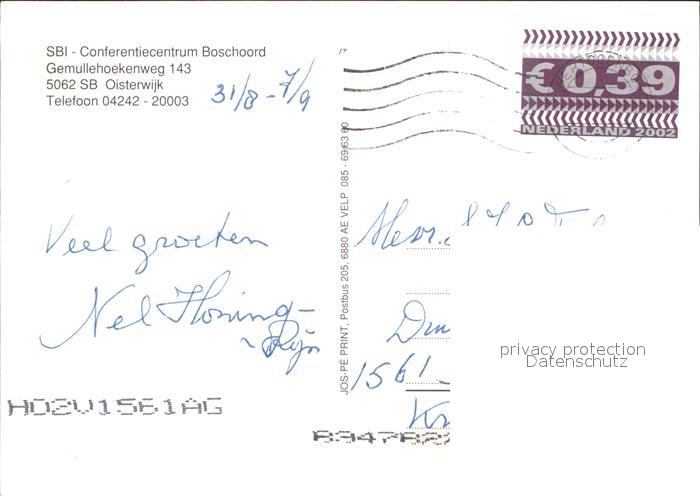 SBI - Conferentiecentrum Boschoord
Gemullehoekenweg 143
5062 SB Oisterwijk
Telefoon 04242 - 20003
31/8 - 7/9
€ 0,39
NEDERLAND 2002
JOS-PÉ PRINT, Postbus 205, 6880 AE VELP 085 - 69 63 60
Veel groeten
Nel Honing-
Rijn
1561
privacy protection
Datenschutz